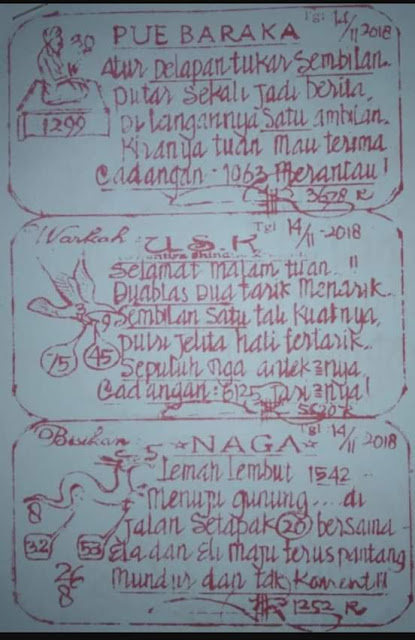 PUE BARAKA Tgl 14/11 2018
30
Atur Delapan tukar Sembilan.
Putar Sekali jadi berita,
Di langannya Satu ambilan.
Kiranya tuan mau terima
1299
Cadangan - 1063 Merantau!
3/578 R
Warkah : U.S.K Tgl 14/11-2018
Selamat malam tuan..!!
Duablas Dua tarik Menarik.
9 Sembilan Satu tali Kuatnya,
Putri Jelita hati tertarik..
75 45 Sepuluh tiga antek=nya.
Cadangan : 6125
5520 R
Bisikan : ☆NAGA☆ Tgl 14/11 2018
Lemah lembut 1542
Menuju gunung... di
8 Jalan Setapak (20) bersama
32 53 Ela dan Eli maju terus pantang
26 8 Mundur dan tak Koment!!
1252 R